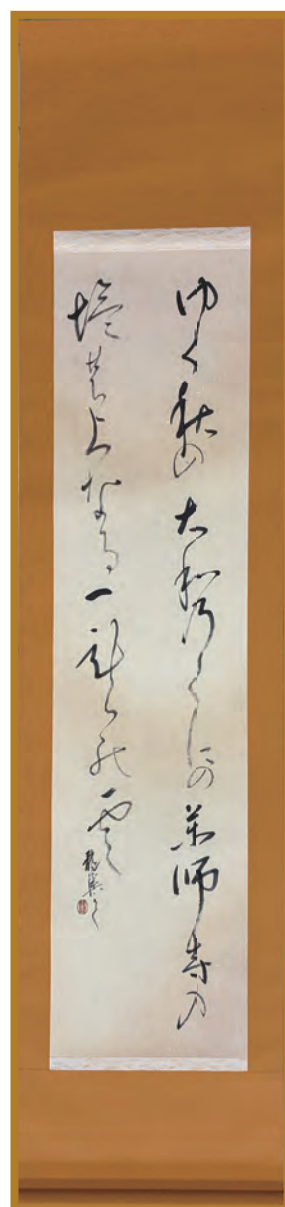 ゆく秋の大和のくにの薬師寺の
塔の上なる一ひらの雲